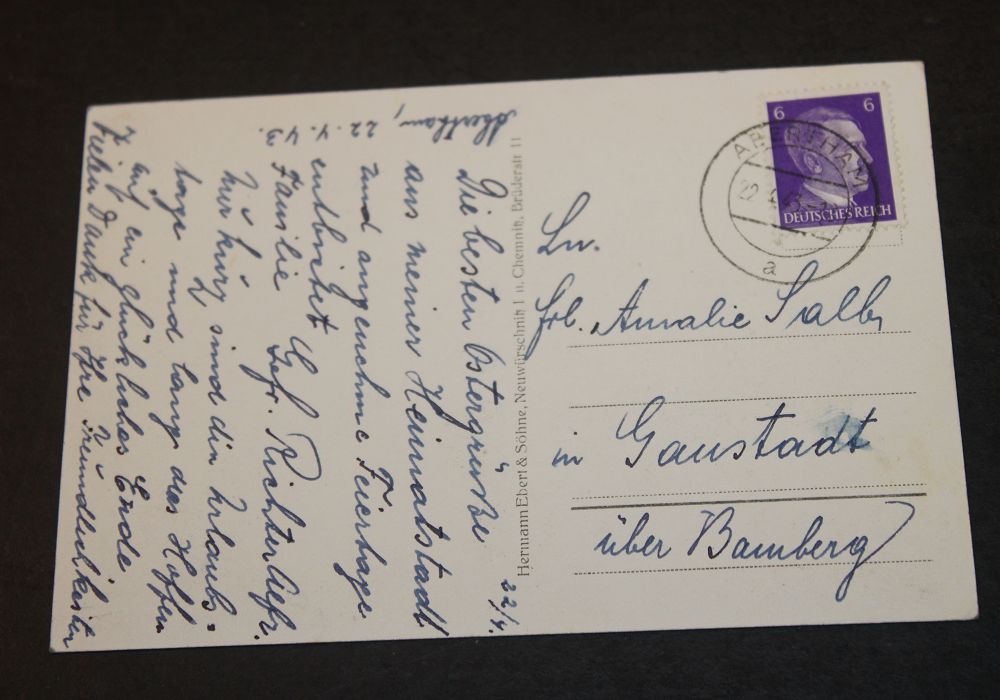 Abertham, 22.4.43.
Die besten Ostergrüße
aus meiner Heimatstadt
und angenehme Feiertage
entbietet
Familie Gefr. Richter
Nur kurz sind die Urlaubs-
tage und lang das Hoffen
auf ein glückliches Ende
Vielen Dank für Ihre Freundlichkeiten
22/4.
Hermann Ebert & Söhne, Neuwürschnitz 1 u. Chemnitz, Brüderstr 11
6 6
DEUTSCHES REICH
ABERTHAM
22
a
Frl. Amalie
in Gaustadt
über Bamberg